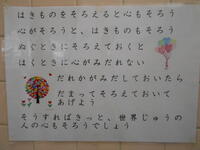 はきものをそろえると心もそろう
心がそろうと、はきものもそろう
ぬぐときにそろえておくと
はくときに心がみだれない
だれかがみだしておいたら
だまってそろえておいて
あげよう
そうすればきっと、世界じゅうの
人の心もそろうでしょう